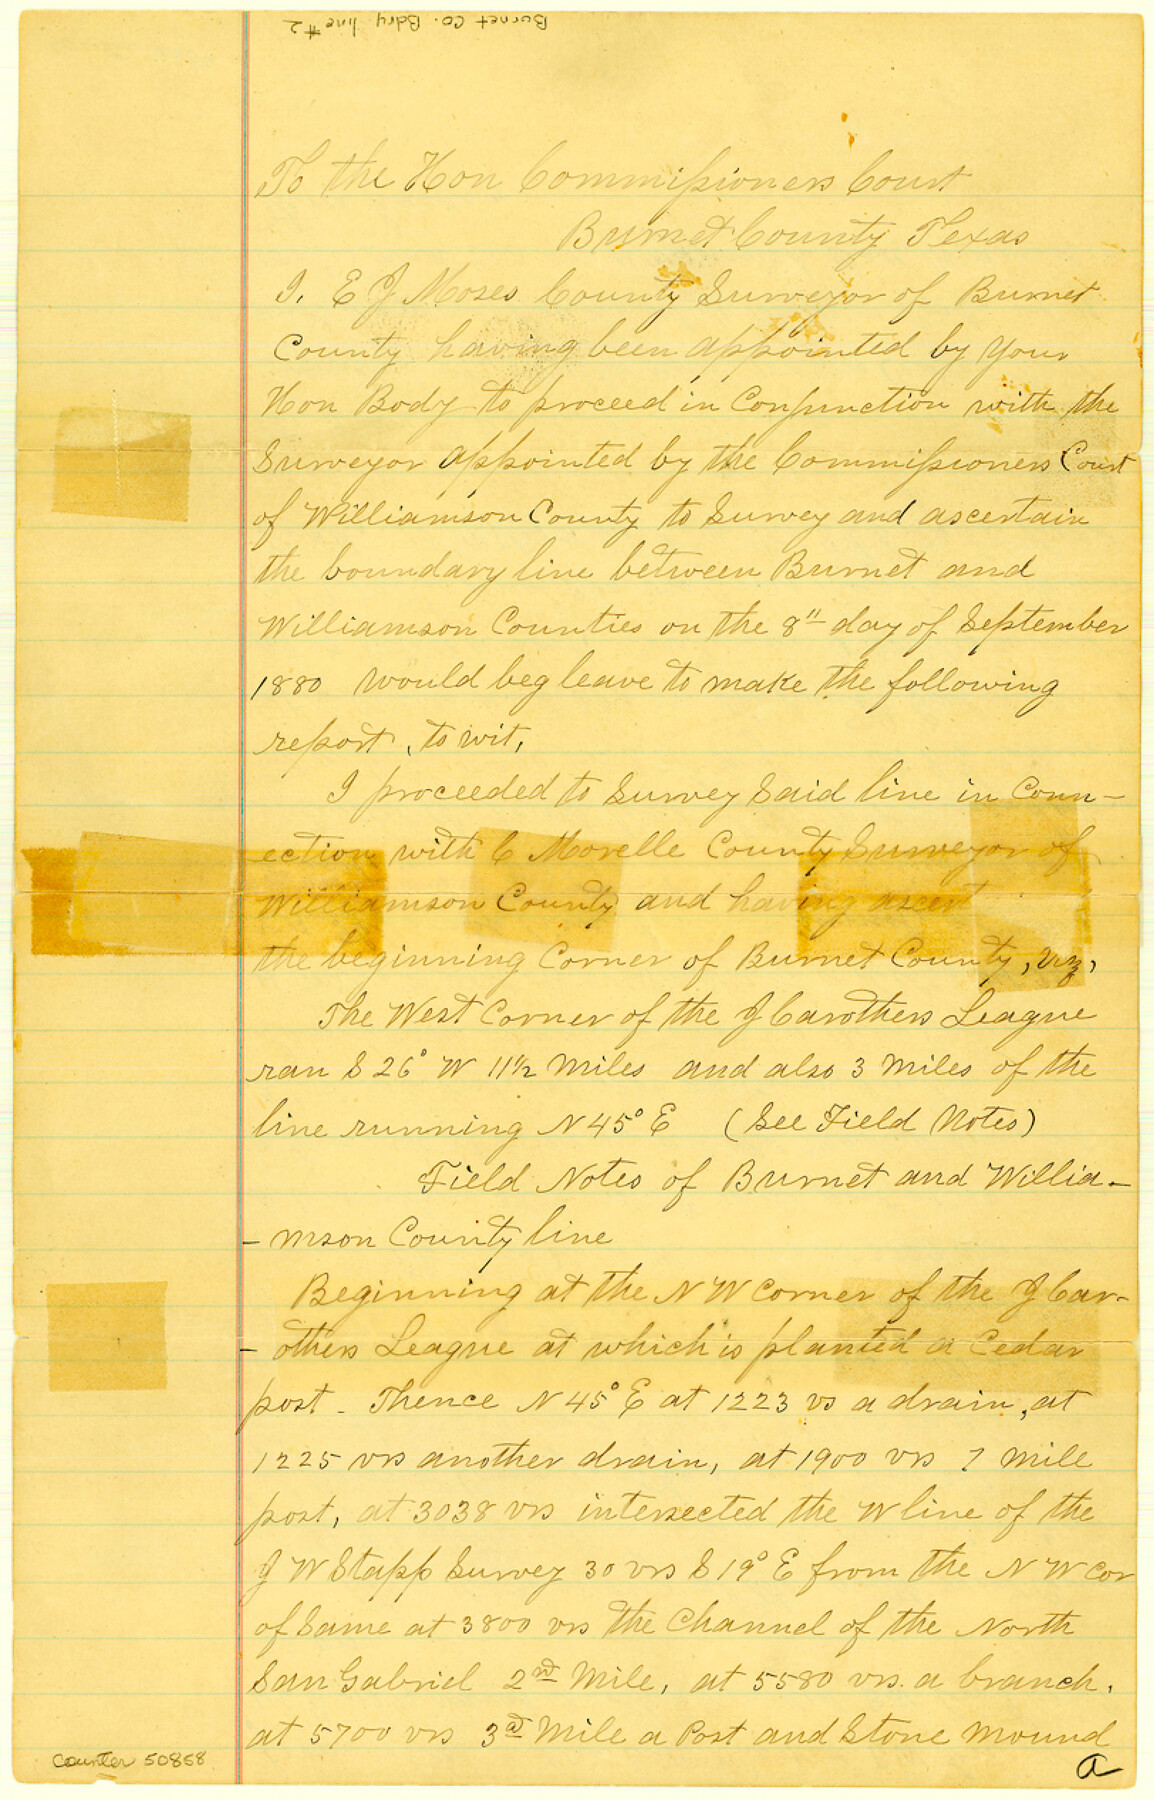 Burnet Co. Bdry line #2
To the Hon Commissioners Court
Burnet County Texas
I, E J Moses County Surveyor of Burnet
County having been appointed by your
Hon Body to proceed in Conjunction with the
Surveyor appointed by the Commissioners Court
of Williamson County to Survey and ascertain
the boundary line between Burnet and
Williamson Counties on the 8th day of September
1880 would beg leave to make the following
report, to wit,
I proceeded to Survey Said line in Conn-
ection with C Morelle County Surveyor of
Williamson County and having ascert
the beginning Corner of Burnet County, viz,
The West Corner of the J Carothers League
ran S 26° W 11½ Miles and also 3 Miles of the
line running N 45° E (See Field Notes)
Field Notes of Burnet and Willia-
- mson County line
Beginning at the N W Corner of the J Car-
- others League at which is planted a Cedar
post - Thence N 45° E at 1223 vs a drain, at
1225 vrs another drain, at 1900 vrs 1 mile
post, at 3038 vrs intersected the W line of the
J W Stapp Survey 30 vrs S 19° E from the N W Cor
of Same at 3800 vrs the Channel of the North
San Gabriel 2nd Mile, at 5580 vrs. a branch,
at 5700 vrs 3d Mile a Post and Stone mound
counter 50858
a